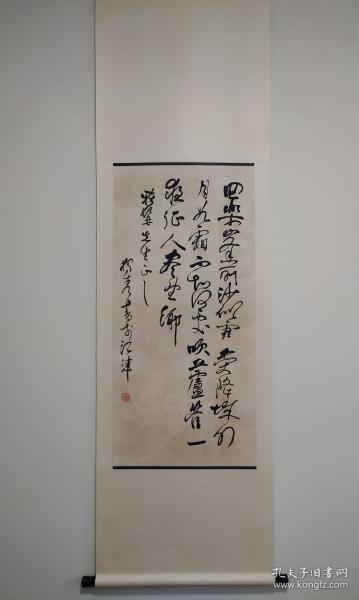 回樂峯前沙似雪受降城外
月如霜不知何處吹蘆管一
夜征人盡望鄉
先生正之
獨秀書於江津
孔夫子旧书网
www.kongfz.com